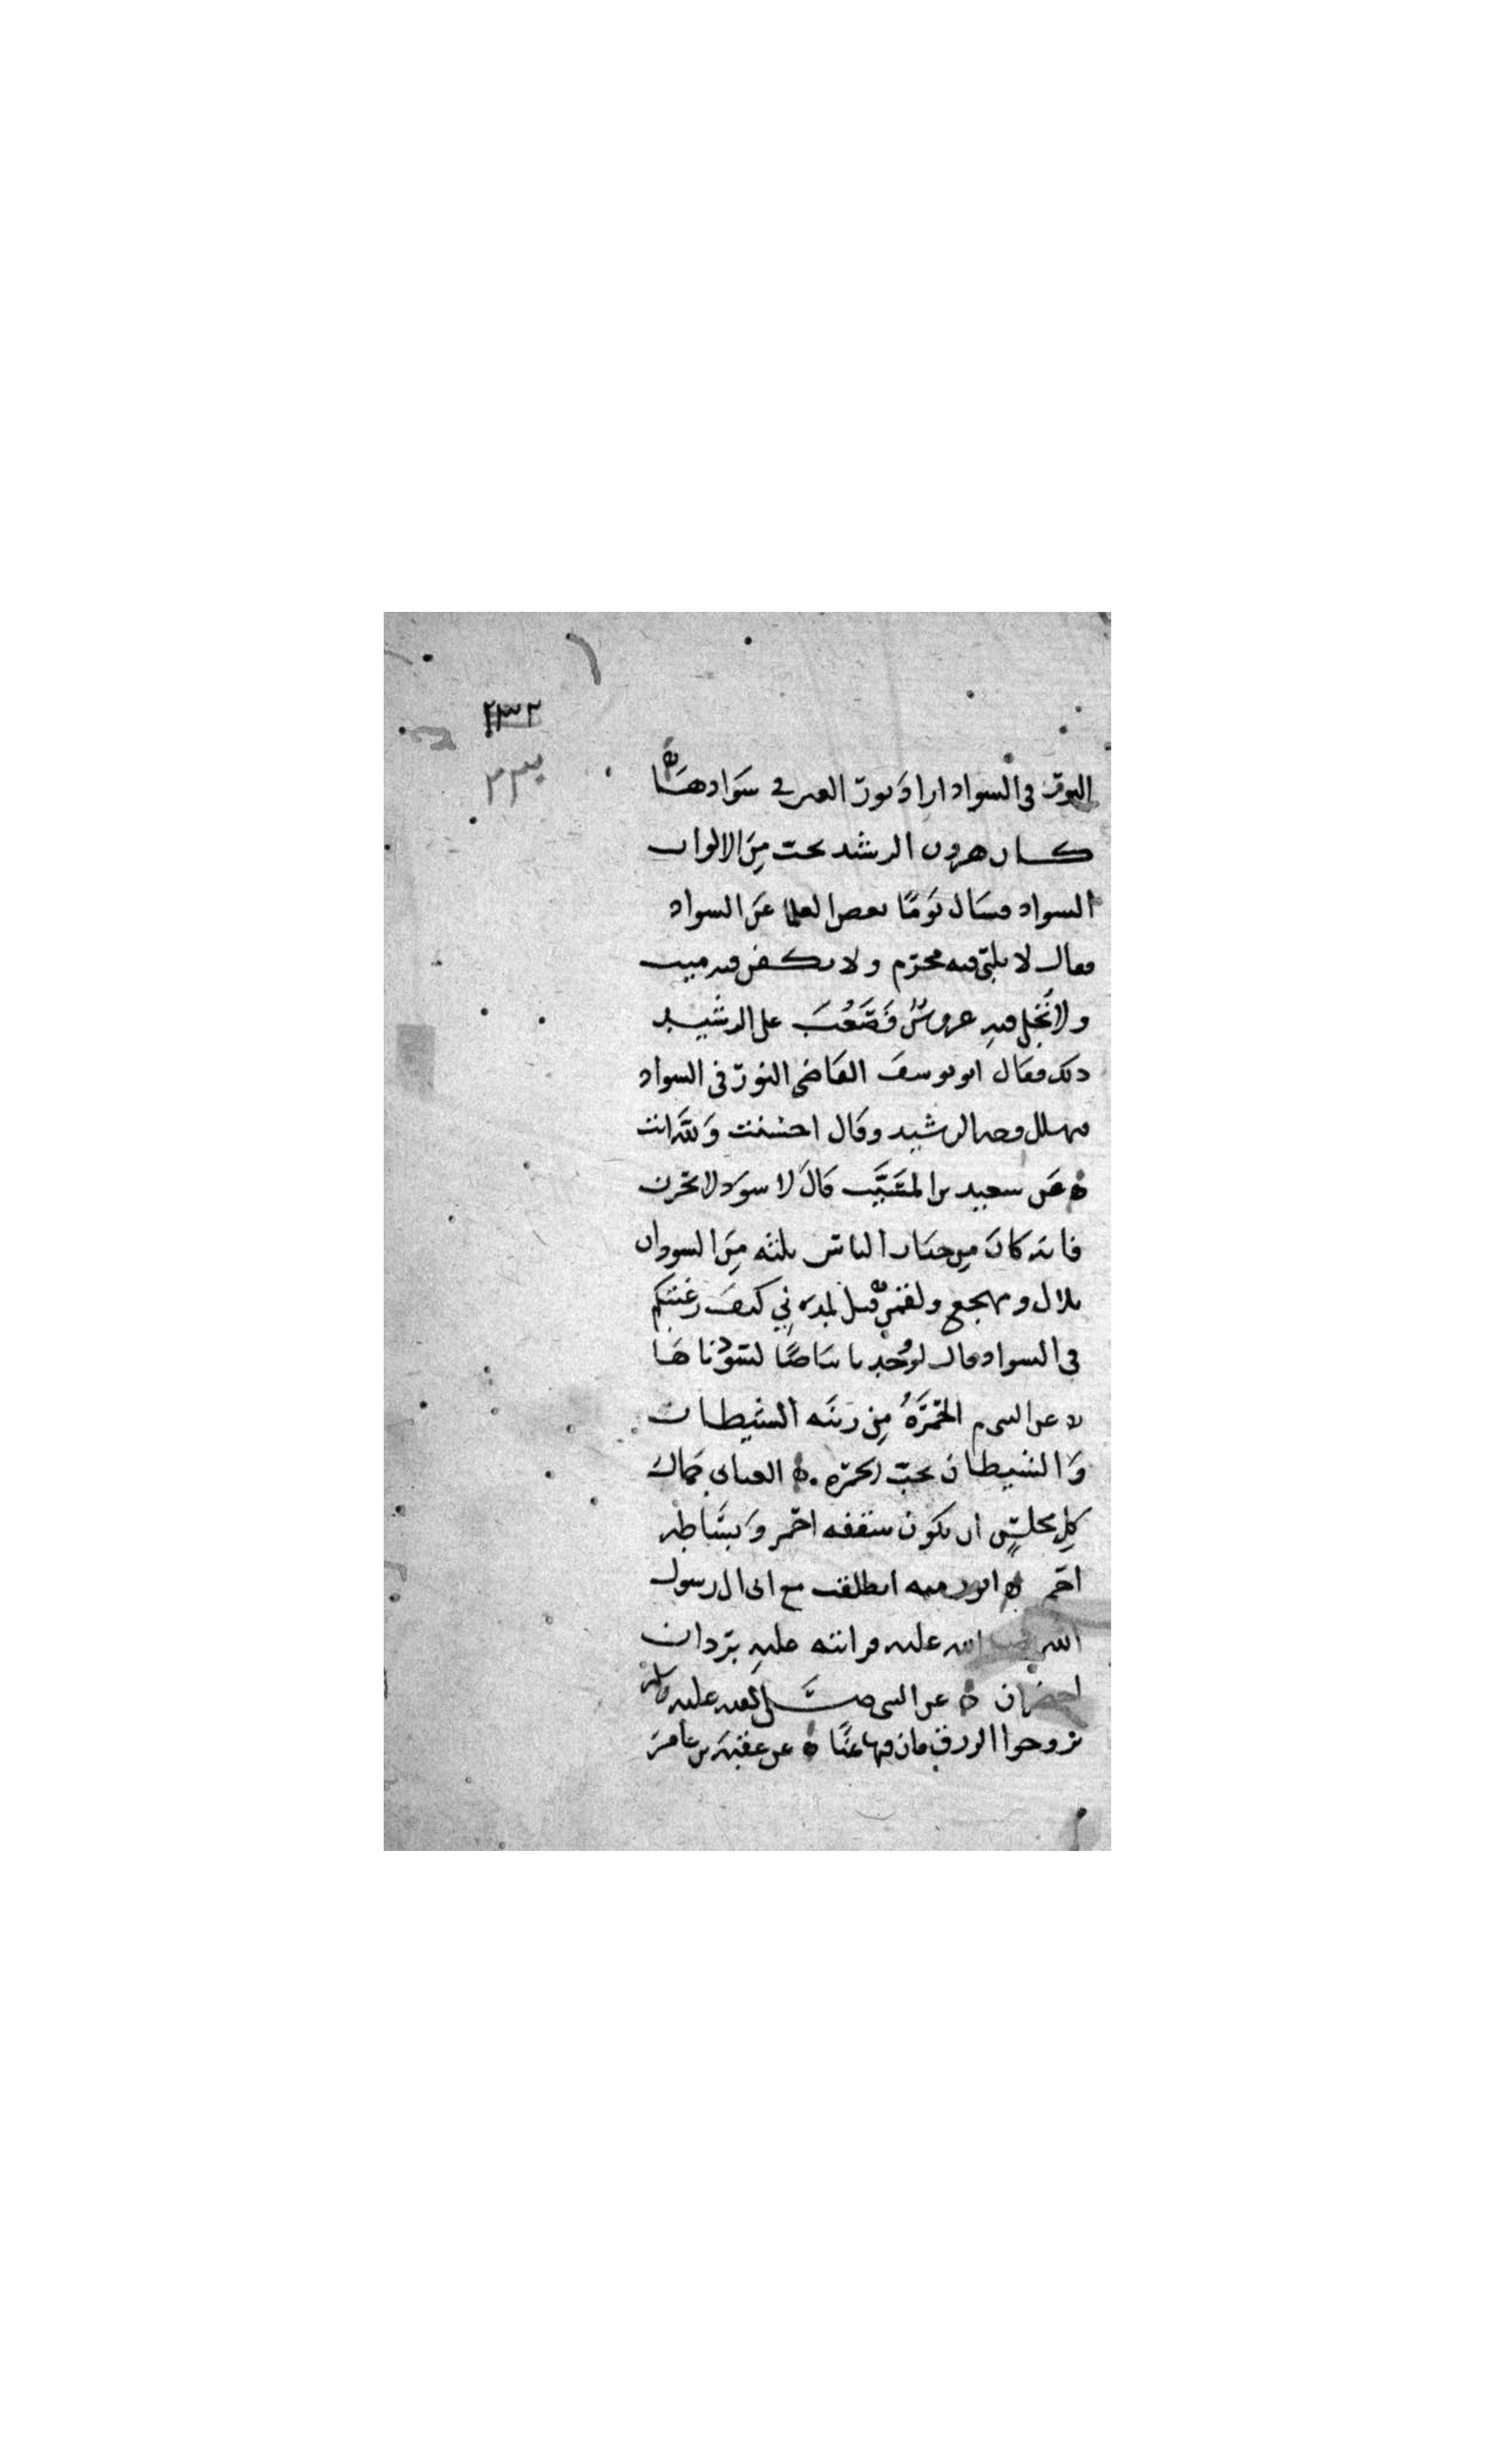 ٢٣٢
٢٣٢
النور في السواد اراد نور العين في سوادها
كان هرون الرشيد تحت من الالوان
السواد فسال يوما بعض العلما عن السواد
فقال لا يلبي فيه محرم ولا يكفن فيه ميت
ولا تجلى فيه عروس فصعب على الرشيد
ذلك فقال ابو يوسف القاضي النور في السواد
فتهلل وجه الرشيد وقال احسنت ولله انت
عن سعيد بن المسيب قال لاسود لا تحزن
فانه كان من خيار الناس ثلثه من السودان
بلال ومهجع ولقمن قيل لمدني كيف رغبتكم
في السواد فقال لو وجدنا بياضا لسودناها
عن النبي م الحمرة من زينه الشيطان
والشيطان يحب الحمره العتابي جمال
كل مجلس ان يكون سقفه احمر وبساطه
احمر ابو رمثه انطلقت مع ابي الى رسول
الله الله عليه فرايته عليه بردان
اخضران عن النبي صلى الله عليه وسلم
تزوجوا الزرق فان فيها عن عقبة بن عامر